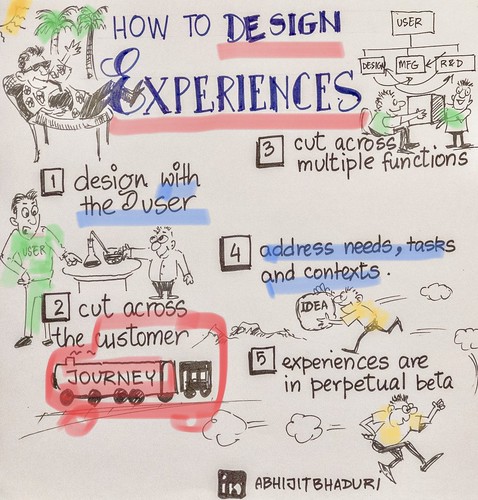 HOW TO DESIGN
EXPERIENCES
USER
DESIGN MFG R&D
1 design with
the user
USER
2 cut across
the customer
JOURNEY
3 cut across
multiple functions
4 address needs, tasks
and contexts.
IDEA
5 experiences are
in perpetual beta
in ABHIJITBHADURI